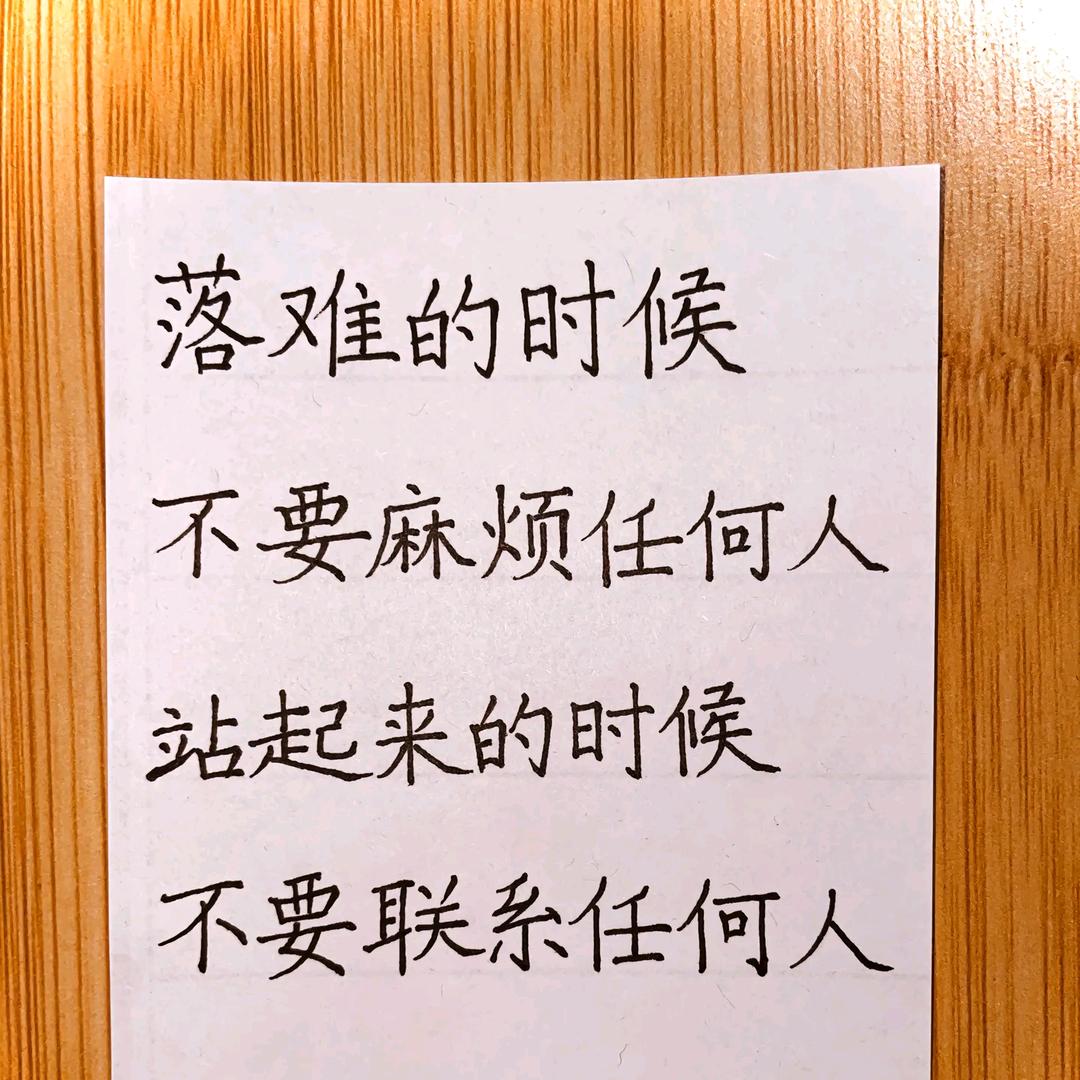 落难的时候
不要麻烦任何人
站起来的时候
不要联系任何人